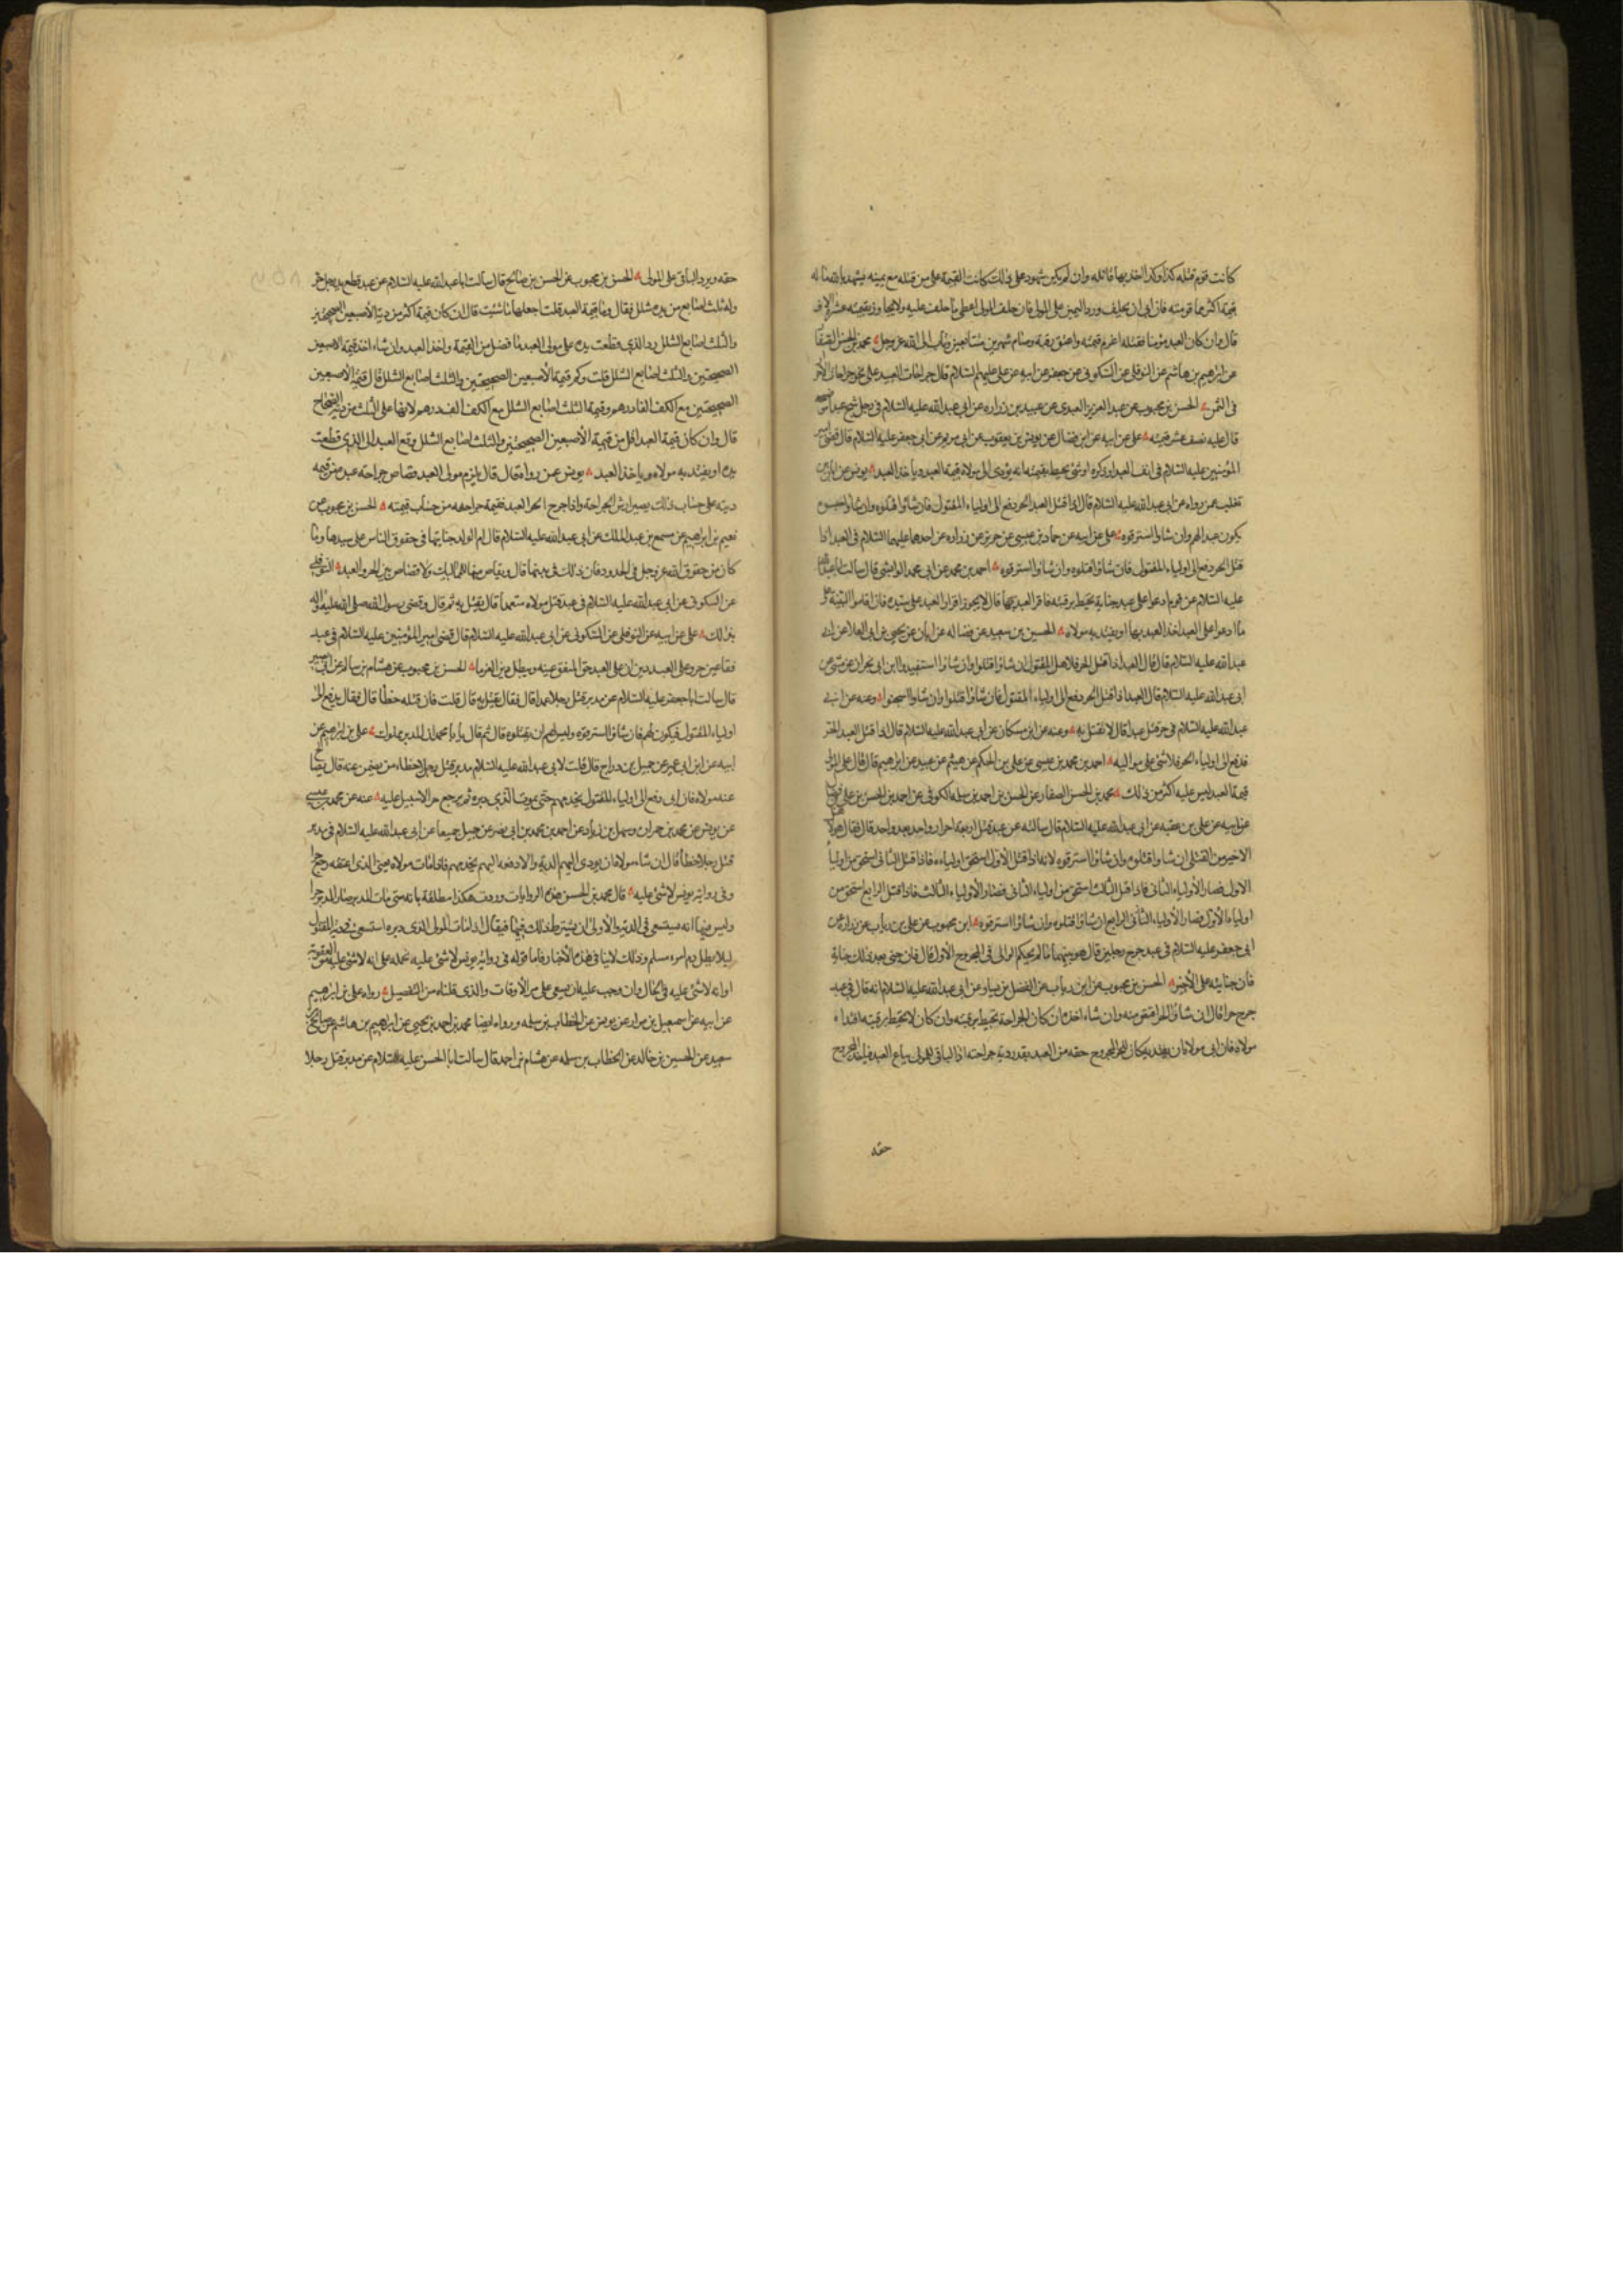 كانت قوم قتله كذا وكذا اخذ بها قاتله وان لم يكن شهود على ذلك كانت القيمة على من قتله مع يمينه يشهد بالله ما له
قيمة اكثر مما قومته فان ابى ان يحلف ورد اليمين على المولى فان حلف المولى اعطى ما حلف عليه ولا يجاوز بقيمته عشرة الاف
قال وان كان العبد مؤمنا فقتله اغرم قيمته واعتق رقبة وصام شهرين متتابعين وتاب الى الله عز وجل محمد بن الحسن الصفار
عن ابرهيم بن هاشم عن النوفلى عن السكونى عن جعفر عن ابيه عن على عليهم السلام قال جراحات العبيد على نحو جراحات الاحرار
فى الثمن الحسن بن محبوب عن عبد العزيز العبدى عن عبيد بن زراره عن ابى عبد الله عليه السلام فى رجل شج عبدا موضحة
قال عليه نصف عشر قيمته على عن ابيه عن ابن فضال عن يونس بن يعقوب عن ابى مريم عن ابى جعفر عليه السلام قال قضى امير
المؤمنين عليه السلام فى انف العبد او ذكره او شئ يحيط بقيمته انه يؤدى الى مولاه قيمة العبد وياخذ العبد يونس عن ابان بن
تغلب عمن رواه عن ابى عبد الله عليه السلام قال اذا قتل العبد الحر دفع الى اولياء المقتول فان شاؤا قتلوه وان شاؤا حبسوه
يكون عبدا لهم وان شاوا استرقوه على عن ابيه عن حماد بن عيسى عن حريز عن زراره عن احدهما عليهما السلام فى العبد اذا
قتل الحر دفع الى اولياء المقتول فان شاؤا قتلوه وان شاؤا استرقوه احمد بن محمد عن ابى محمد الوابشى قال سالت ابا عبد الله
عليه السلام عن قوم ادعوا على عبد جناية تحيط برقبته فاقر العبد بها قال لا يجوز اقرار العبد على سيده فان اقاموا البينة على
ما ادعوا على العبد اخذ العبد بها او يفتديه مولاه الحسين بن سعيد عن فضاله عن ابان عن يحيى بن ابى العلا عن ابى
عبد الله عليه السلام قال قال العبد اذا قتل الحر فلاهل المقتول ان شاؤا قتلوا وان شاؤا استعبدوا ابن ابى نجران عن مثنى عن
ابى عبد الله عليه السلام قال العبد اذا قتل الحر دفع الى اولياء المقتول فان شاؤا قتلوا وان شاوا وعنه عن ابى
عبد الله عليه السلام فى حر قتل عبدا قال لا يقتل به وعنه عن ابن مسكان عن ابى عبد الله عليه السلام قال اذا قتل العبد الحر
فدفع الى اولياء الحر فلا شئ على مواليه احمد بن محمد بن عيسى عن على بن الحكم عن هيثم عن عبيد عن ابرهيم قال قال على المولى
قيمة العبد ليس عليه اكثر من ذلك محمد بن الحسن الصفار عن الحسن بن احمد بن سلمه الكوفى عن احمد بن الحسن بن على بن فضال
عن ابيه عن على بن عقبه عن ابى عبد الله عليه السلام قال سالته عن عبد قتل اربعة احرار واحد بعد واحد قال فقال هو لاهل
الاخير من القتلى ان شاوا قتلوه وان شاؤا استرقوه لانه اذا قتل الاول استحق اولياءه فاذا قتل الثانى استحق من اولياء
الاول فصار لاولياء الثانى فاذا قتل الثالث استحق من اولياء الثانى فصار لاولياء الثالث فاذا قتل الرابع استحق من
اولياء فصار لاولياء الرابع ان شاؤا قتلوه وان شاؤا استرقوه ابن محبوب عن على بن رياب عن زراره عن
ابى جعفر عليه السلام فى عبد جرح رجلين قال هو بينهما ما لم يحكم الوالى فى المجروح الاول قال فان جنى بعد ذلك جناية
فان جنايته على الاخير الحسن بن محبوب عن ابن رياب عن الفضل بن يسار عن ابى عبد الله عليه السلام انه قال فى عبد
جرح حرا قال ان شاؤ الحر اقتص منه وان شاء اخذه ان كان الجراحة تحيط برقبته وان كان لا تحيط برقبته افتداه
مولاه فان ابى مولاه ان يفتديه كان للحر المجروح حقه من العبد بقدر دية جراحته والباقى للمولى يباع العبد فياخذ المجروح
حقه
حقه ويرد الباقى على المولى الحسن بن محبوب عن الحسن بن صالح قال سألت ابا عبد الله عليه السلام عن عبد قطع يد رجل حر
وله ثلث اصابع من يده شلل فقال وما قيمة العبد قلت اجعلها ما شئت قال ان كان قيمة اكثر من دية الاصبعين الصحيحتين
والثلث اصابع الشلل رد الذى قطعت يده على مولى العبد ما فضل من القيمة واخذ العبد وان شاء اخذ قيمة الاصبعين
الصحيحتين والثلث اصابع الشلل قلت وكم قيمة الاصبعين الصحيحتين والثلث اصابع الشلل قال قيمة الاصبعين
الصحيحتين مع الكف الفا درهم وقيمة الثلث اصابع الشلل مع الكف الف درهم لانها على الثلث من دية الصحاح
قال وان كان قيمة العبد اقل من قيمة الاصبعين الصحيحتين والثلث اصابع الشلل دفع العبد الى الذى قطعت
يده او يفتديه مولاه وياخذ العبد يونس عمن رواه قال قال يلزم مولى العبد قصاص جراحة عبده من قيمه
ديته على حساب ذلك يصير ارش الجراحة واذا جرح الحر العبد فقيمة جراحته من حساب قيمته الحسن بن محبوب عن
نعيم بن ابراهيم عن مسمع بن عبد الملك عن ابى عبد الله عليه السلام قال ام الولد جنايتها فى حقوق الناس على سيدها وما
كان من حقوق الله عز وجل فى الحدود فان ذلك فى بدنها قال ويقاص منها للمماليك ولا قصاص بين الحر والعبد النوفلى
عن السكونى عن ابى عبد الله عليه السلام فى عبد قتل مولاه متعمدا قال يقتل به ثم قال وقضى رسول الله صلى الله عليه واله
بذلك على عن ابيه عن النوفلى عن السكونى عن ابى عبد الله عليه السلام قال قضى امير المؤمنين عليه السلام فى عبد
فقا عين حر وعلى العبد دين ان على العبد حدا للمفقو عينه ويبطل دين الغرما الحسن بن محبوب عن هشام بن سالم عن ابى بصير
قال سالت ابا جعفر عليه السلام عن مدبر قتل رجلا عمدا قال فقال يقتل به قال قلت فان قتله خطأ قال فقال يدفع الى
اولياء المقتول فيكون لهم فان شاؤا استرقوه وليس لهم ان يقتلوه قال ثم قال يا ابا محمد ان المدبر مملوك على بن ابراهيم عن
ابيه عن ابن ابى عمير عن جميل بن دراج قال قلت لابى عبد الله عليه السلام مدبر قتل رجلا خطاء من يضمن عنه قال يصالح
عنه مولاه فان ابى دفع الى اولياء المقتول يخدمهم حتى يموت الذى دبره ثم يرجع حرا لا سبيل عليه عنه عن محمد بن عيسى
عن يونس عن محمد بن حمران وسهل بن زياد عن احمد بن محمد بن ابى نصر عن جميل جميعا عن ابى عبد الله عليه السلام فى مدبر
قتل رجلا خطأ قال ان شاء مولاه ان يودى اليهم الدية والا دفعه اليهم يخدمهم فاذا مات مولاه يعنى الذى اعتقه رجع حرا
وفى رواية يونس لا شئ عليه قال محمد بن الحسن هذه الروايات وردت هكذا مطلقة بانه متى مات المدبر صار المدبر حرا
وليس فيها انه يستسعى فى الدية والاولى ان يشترط ذلك فيها فيقال اذا مات المولى الذى دبره استسعى فى دية المقتول
ليلا يطل دم امرء مسلم وذلك لا ينافى هذه الاخبار فاما قوله فى رواية يونس لا شئ عليه نحمله على انه لا شئ عليه من العقوبة
او انه لا شئ عليه فى الحال وان وجب عليه ان يسعى على مر الاوقات والذى قلناه من التفصيل رواه على بن ابراهيم
عن ابيه عن اسمعيل بن مرار عن يونس عن الخطاب بن سلمه ورواه ايضا محمد بن احمد بن يحيى عن ابراهيم بن هاشم عن صالح بن
سعيد عن الحسين بن خالد عن الخطاب بن سلمه عن هشام بن احمد قال سالت ابا الحسن عليه السلام عن مدبر قتل رجلا